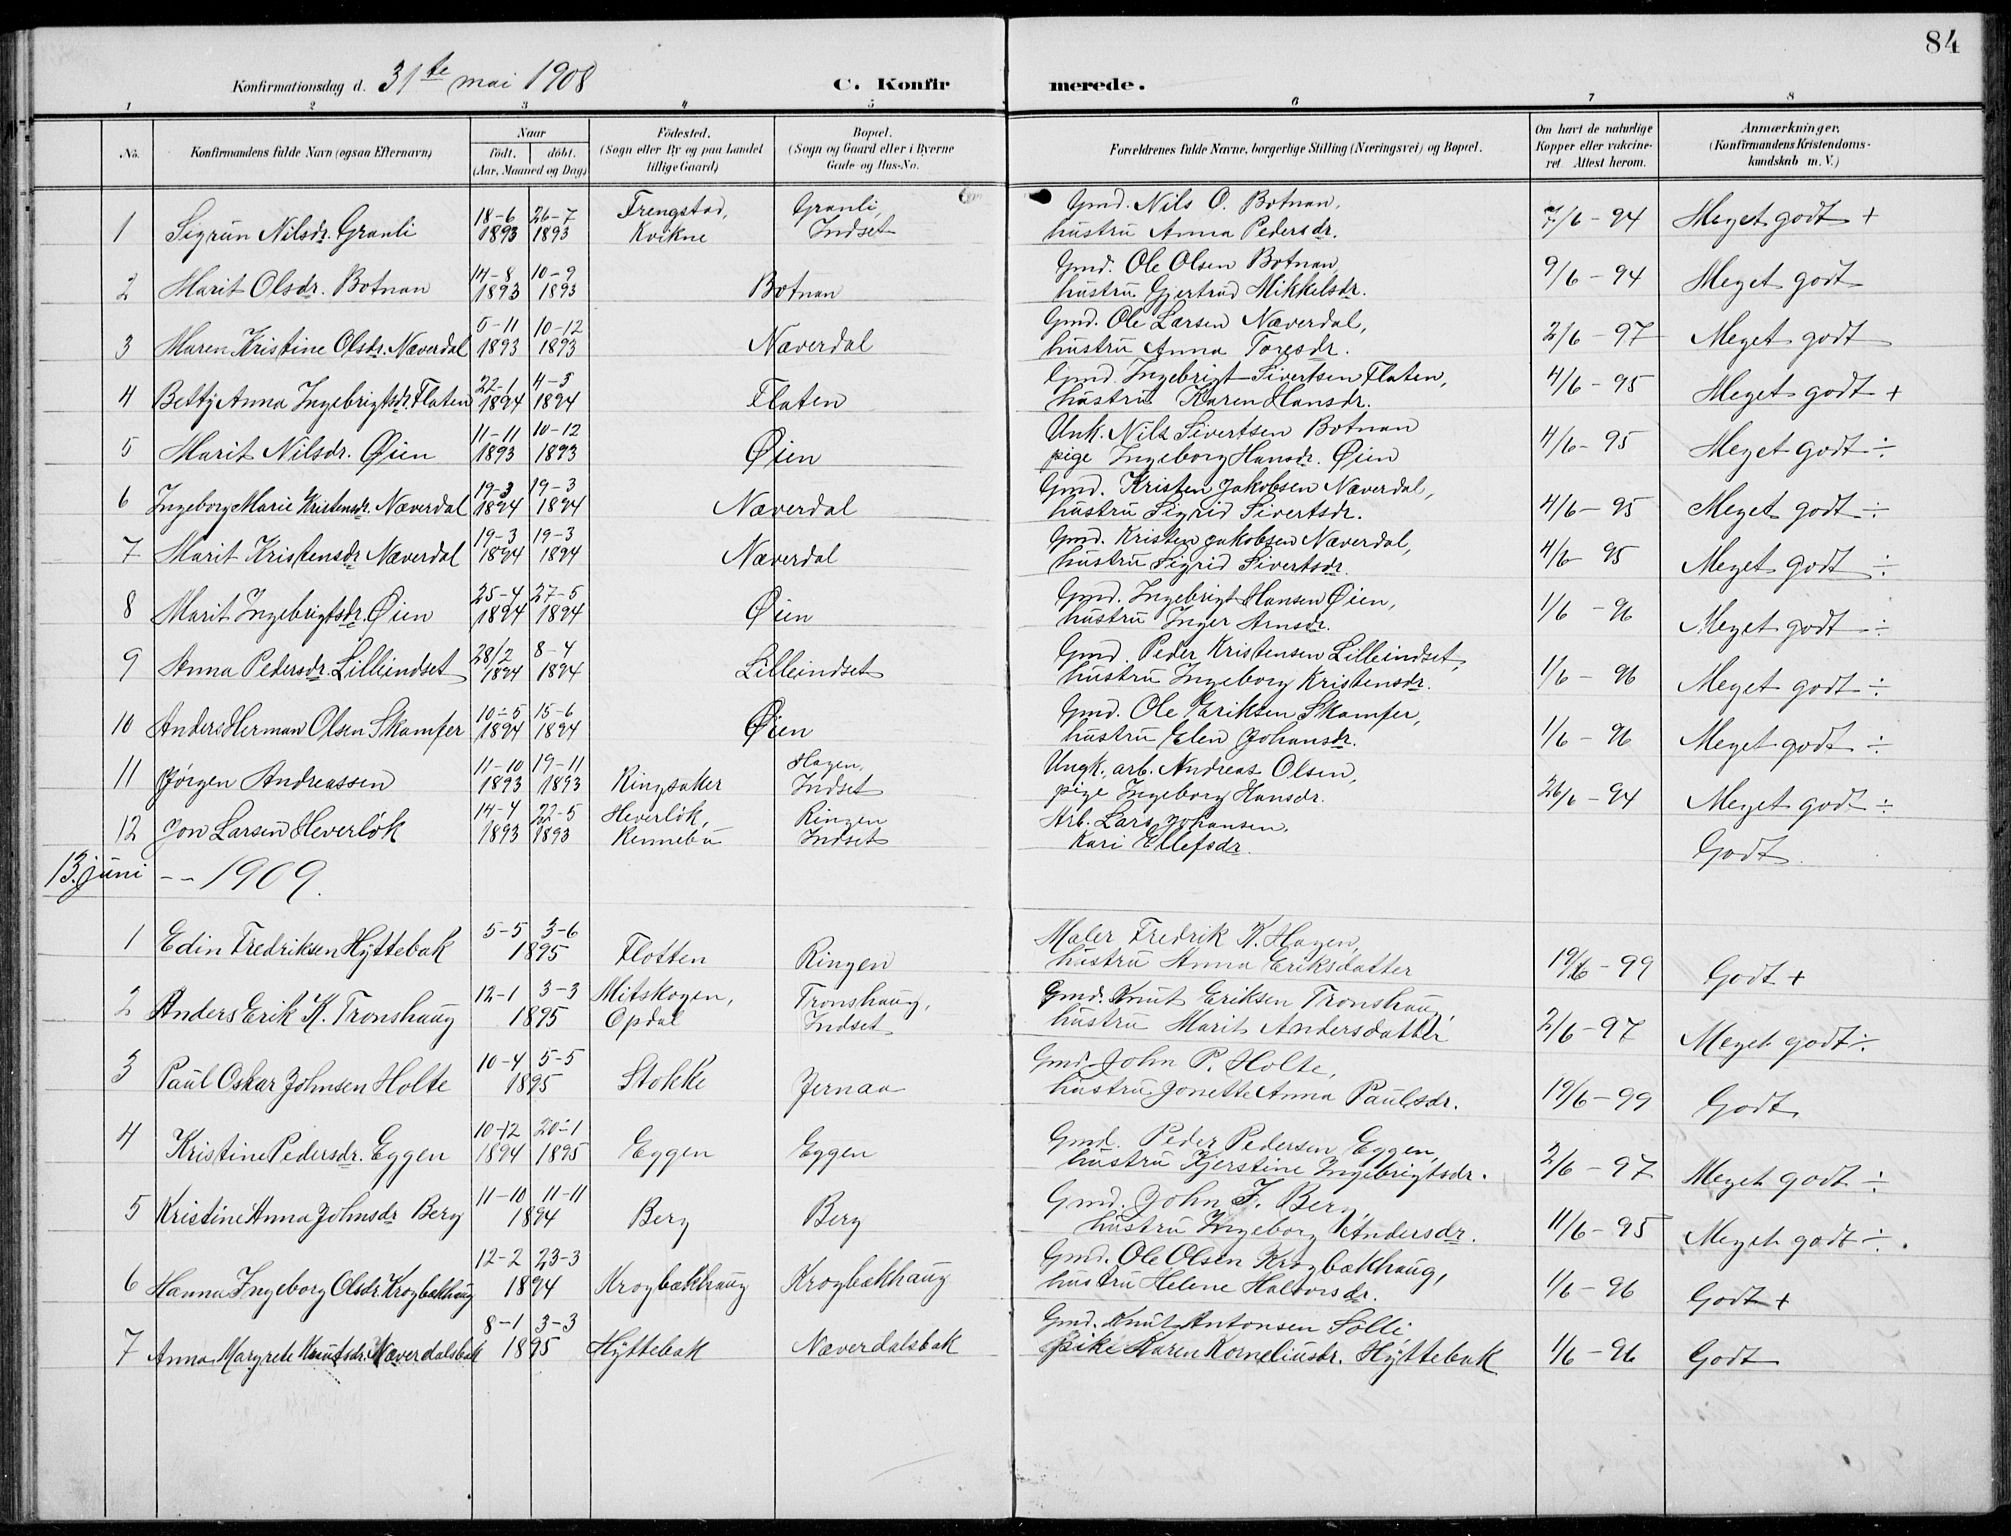 84
Konfirmationsdag d. 31te mai 1908 C. Konfir merede.
1 2 3 4 5 6 7 8
No. Konfirmandens fulde Navn (ogsaa Efternavn) Naar födt. döbt. (Aar, Maaned og Dag) Födested. (Sogn eller By og paa Landet tillige Gaard) Bopæl. (Sogn og Gaard eller i Byerne Gade og Hus-No. Forældrenes fulde Navne, borgerlige Stilling (Næringsvei) og Bopæl. Om havt de naturlige Kopper eller vakcineret. Attest herom. Anmærkninger. (Konfirmandens Kristendomskundskab m. V.)
18-6 26-7 Frengstad, Granli, Gmd. Nils O. Botnan,
1 Sigrun Nilsdr. Granli 1893 1893 Kvikne Indset hustru Anna Pedersdr. 7/6 - 94 Meget godt +
14-8 10-9 Gmd. Ole Olsen Botnan,
2 Marit Olsdr. Botnan 1893 1893 Botnan hustru Gjertrud Mikkelsdr. 9/6 - 94 Meget godt
5-11 10-12 Gmd. Ole Larsen Næverdal,
3 Maren Kristine Olsdr. Næverdal 1893 1893 Næverdal hustru Anna Toresdr. 2/6 - 97 Meget godt
22-1 4-3 Gmd. Ingebrigt Sivertsen Floten,
4 Betty Anna Ingebrigtsdr. Floten 1894 1894 Floten hustru Karen Hansdr. 4/6 - 95 Meget godt +
11-11 10-12 Unk. Nils Sivertsen Botnan
5 Marit Nilsdr. Øien 1893 1893 Øien pige Ingeborg Hansdr. Øien 4/6 - 95 Meget godt ÷
19-3 19-3 Gmd. Kristen Jakobsen Næverdal,
6 Ingeborg Marie Kristensdr. Næverdal 1894 1894 Næverdal hustru Sigrid Sivertsdr. 4/6 - 95 Meget godt ÷
19-3 19-3 Gmd. Kristen Jakobsen Næverdal,
7 Marit Kristensdr. Næverdal 1894 1894 Næverdal hustru Sigrid Sivertsdr. 4/6 95 Meget godt ÷
25-4 27-5 Gmd. Ingebrigt Hansen Øien,
8 Marit Ingebrigtsdr. Øien 1894 1894 Øien hustru Inger Arnsdr. 1/6 - 96 Meget godt ÷
28/2 8-4 Gmd. Peder Kristensen Lilleindset,
9 Anna Pedersdr. Lilleindset 1894 1894 Lilleindset hustru Ingeborg Kristensdr. 1/6 - 96 Meget godt ÷
10-5 15-6 Gmd. Ole Eriksen Skamfer,
10 Anders Herman Olsen Skamfer 1894 1894 Øien hustru Elen Johansdr. 1/6 - 96 Meget godt ÷
11-10 19-11 Hagen, Ungk. arb. Andreas Olsen,
11 Jørgen Andreassen 1893 1893 Ringsaker Indset pige Ingeborg Hansdr. 26/6 - 94 Meget godt ÷
14-4 22-5 Heverløk, Ringen Arb. Lars Johansen,
12 Jon Larsen Heverløk 1893 1893 Rennebu Indset Kari Ellefsdr. Godt.
13. juni -- 1909.
5-5 3-6 Maler Fredrik K. Hagen,
1 Edin Fredriksen Hyttebak 1895 Flotten Ringen hustru Anna Eriksdatter 19/6 - 99 Godt +
12-1 3-3 Mitskogen, Tronshaug, Gmd. Knut Eriksen Tronshaug,
2 Anders Erik K. Tronshaug 1895 Opdal Indset hustru Marit Andersdatter 2/6 - 97 Meget godt ÷
10-4 5-5 Gmd. John P. Holte,
3 Paul Oskar Johnsen Holte 1895 Stokke Jernaa hustru Jonette Anna Paulsdr. 19/6 - 99 Godt
10-12 20-1 Gmd. Peder Pedersen Eggen,
4 Kristine Pedersdr. Eggen 1894 1895 Eggen Eggen hustru Kjerstine Ingebrigtsdr. 2/6 - 97 Meget godt ÷
11-10 11-11 Gmd. John J. Berg,
5 Kristine Anna Johnsdr Berg 1894 Berg Berg hustru Ingeborg Andersdr. 11/6 - 95 Meget godt ÷.
12-2 23-3 Gmd. Ole Olsen Krogbækhaug,
6 Hanna Ingeborg Olsdr. Krogbækhaug 1894 Krogbækhaug Krogbækhaug hustru Helene Halvorsdr. 1/6 - 96 Godt +
8-1 3-3 Gmd. Knut Antonsen Solli
7 Anna Margrete Knutsdr. Næverdalsbak 1895 Hyttebak Næverdalsbak pike Karen Korneliusdr. Hyttebak 1/6 - 96 Godt